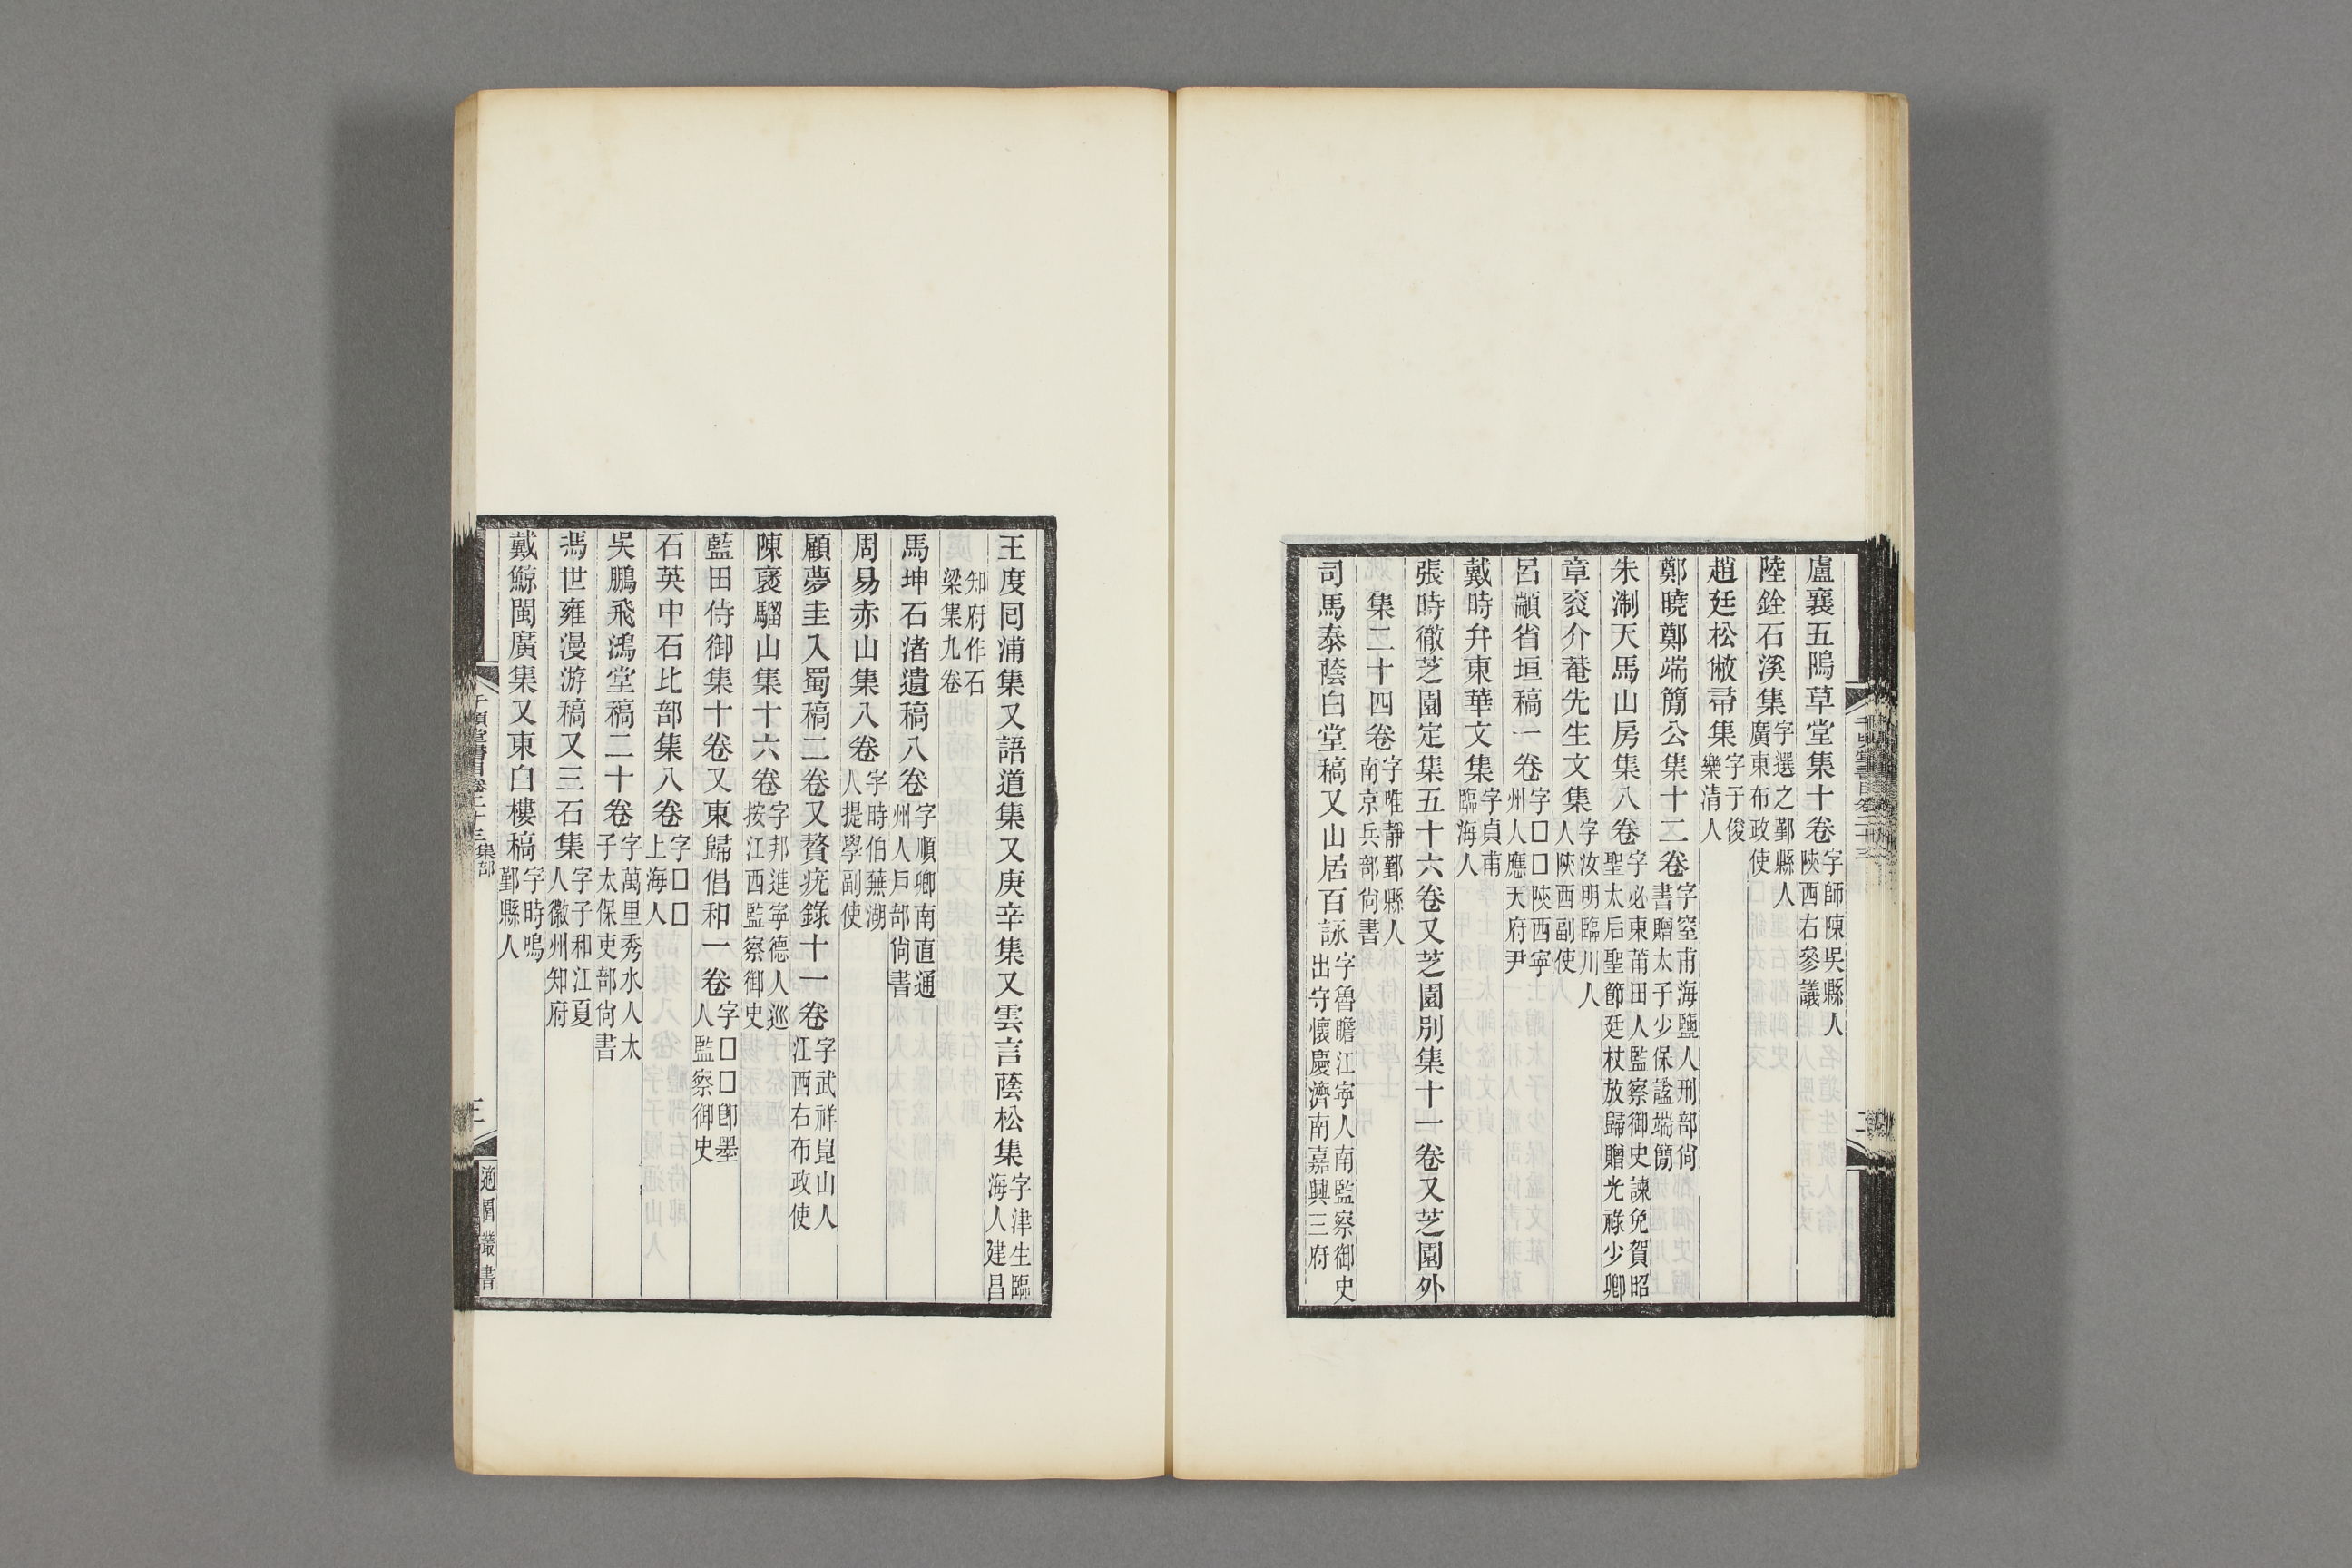 盧襄五隖草堂集十卷字師陳吳縣人陝西右參議
陸銓石溪集字選之鄞縣人廣東布政使
趙廷松俶帚集字于俊樂清人
鄭曉鄭端簡公集十二卷字窒甫海鹽人刑部尙書贈太子少保謚端簡
朱淛天馬山房集八卷字必東莆田人監察御史諫免賀昭聖太后聖節廷杖放歸贈光祿少卿
章袞介菴先生文集字汝明臨川人陝西副使
呂顓省垣稿一卷字□□陝西寧州人應天府尹
戴時弁東華文集字貞甫臨海人
張時徹芝園定集五十六卷又芝園別集十一卷又芝園外
集二十四卷字唯靜鄞縣人南京兵部尙書
司馬泰蔭白堂稿又山居百詠字魯瞻江寧人南監察御史出守懷慶濟南嘉興三府
王度同浦集又語道集又庚辛集又雲言蔭松集字津生臨海人建昌
知府作石梁集九卷
馬坤石渚遺稿八卷字順卿南直通州人戶部尙書
周易赤山集八卷字時伯蕪湖人提學副使
顧夢圭入蜀稿二卷又贅疣錄十一卷字武祥崑山人江西右布政使
陳襃騮山集十六卷字邦進寧德人巡按江西監察御史
藍田侍御集十卷又東歸倡和一卷字□□卽墨人監察御史
石英中石比部集八卷字□□上海人
吳鵬飛鴻堂稿二十卷字萬里秀水人太子太保吏部尙書
馮世雍漫游稿又三石集字子和江夏人徽州知府
戴鯨閩廣集又東白樓稿字時鳴鄞縣人
千頃堂書目卷二十三集部
三
適園叢書